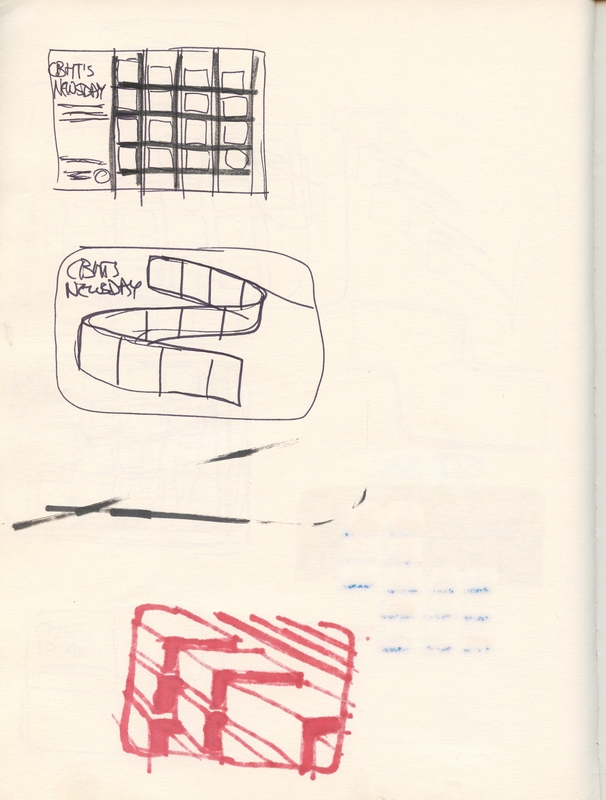 CBHT'S
NEWSDAY
CBHT'S
NEWSDAY